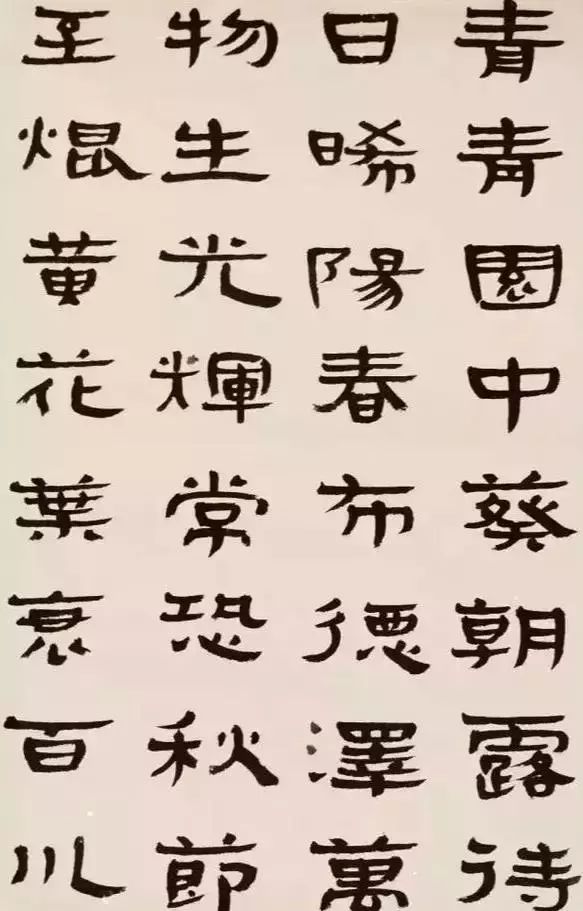 青青園中葵朝露待
日晞陽春布德澤萬
物生光輝常恐秋節
至焜黄花葉衰百川